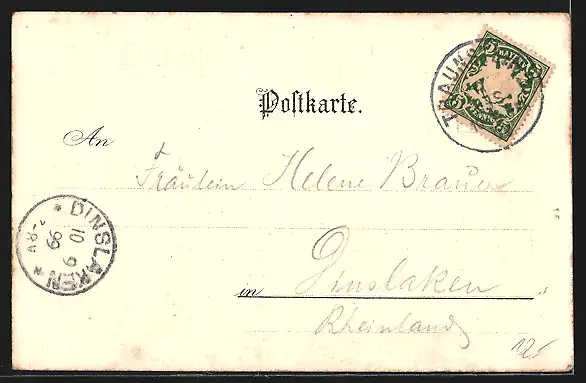 5 BAYERN 5
PFENNIG
TRAUNST
Postkarte.
An
Fräulein Helene Brauer
DINSLAKEN
10 9
99
7-8V
in Dinslaken
Rheinland
12,-